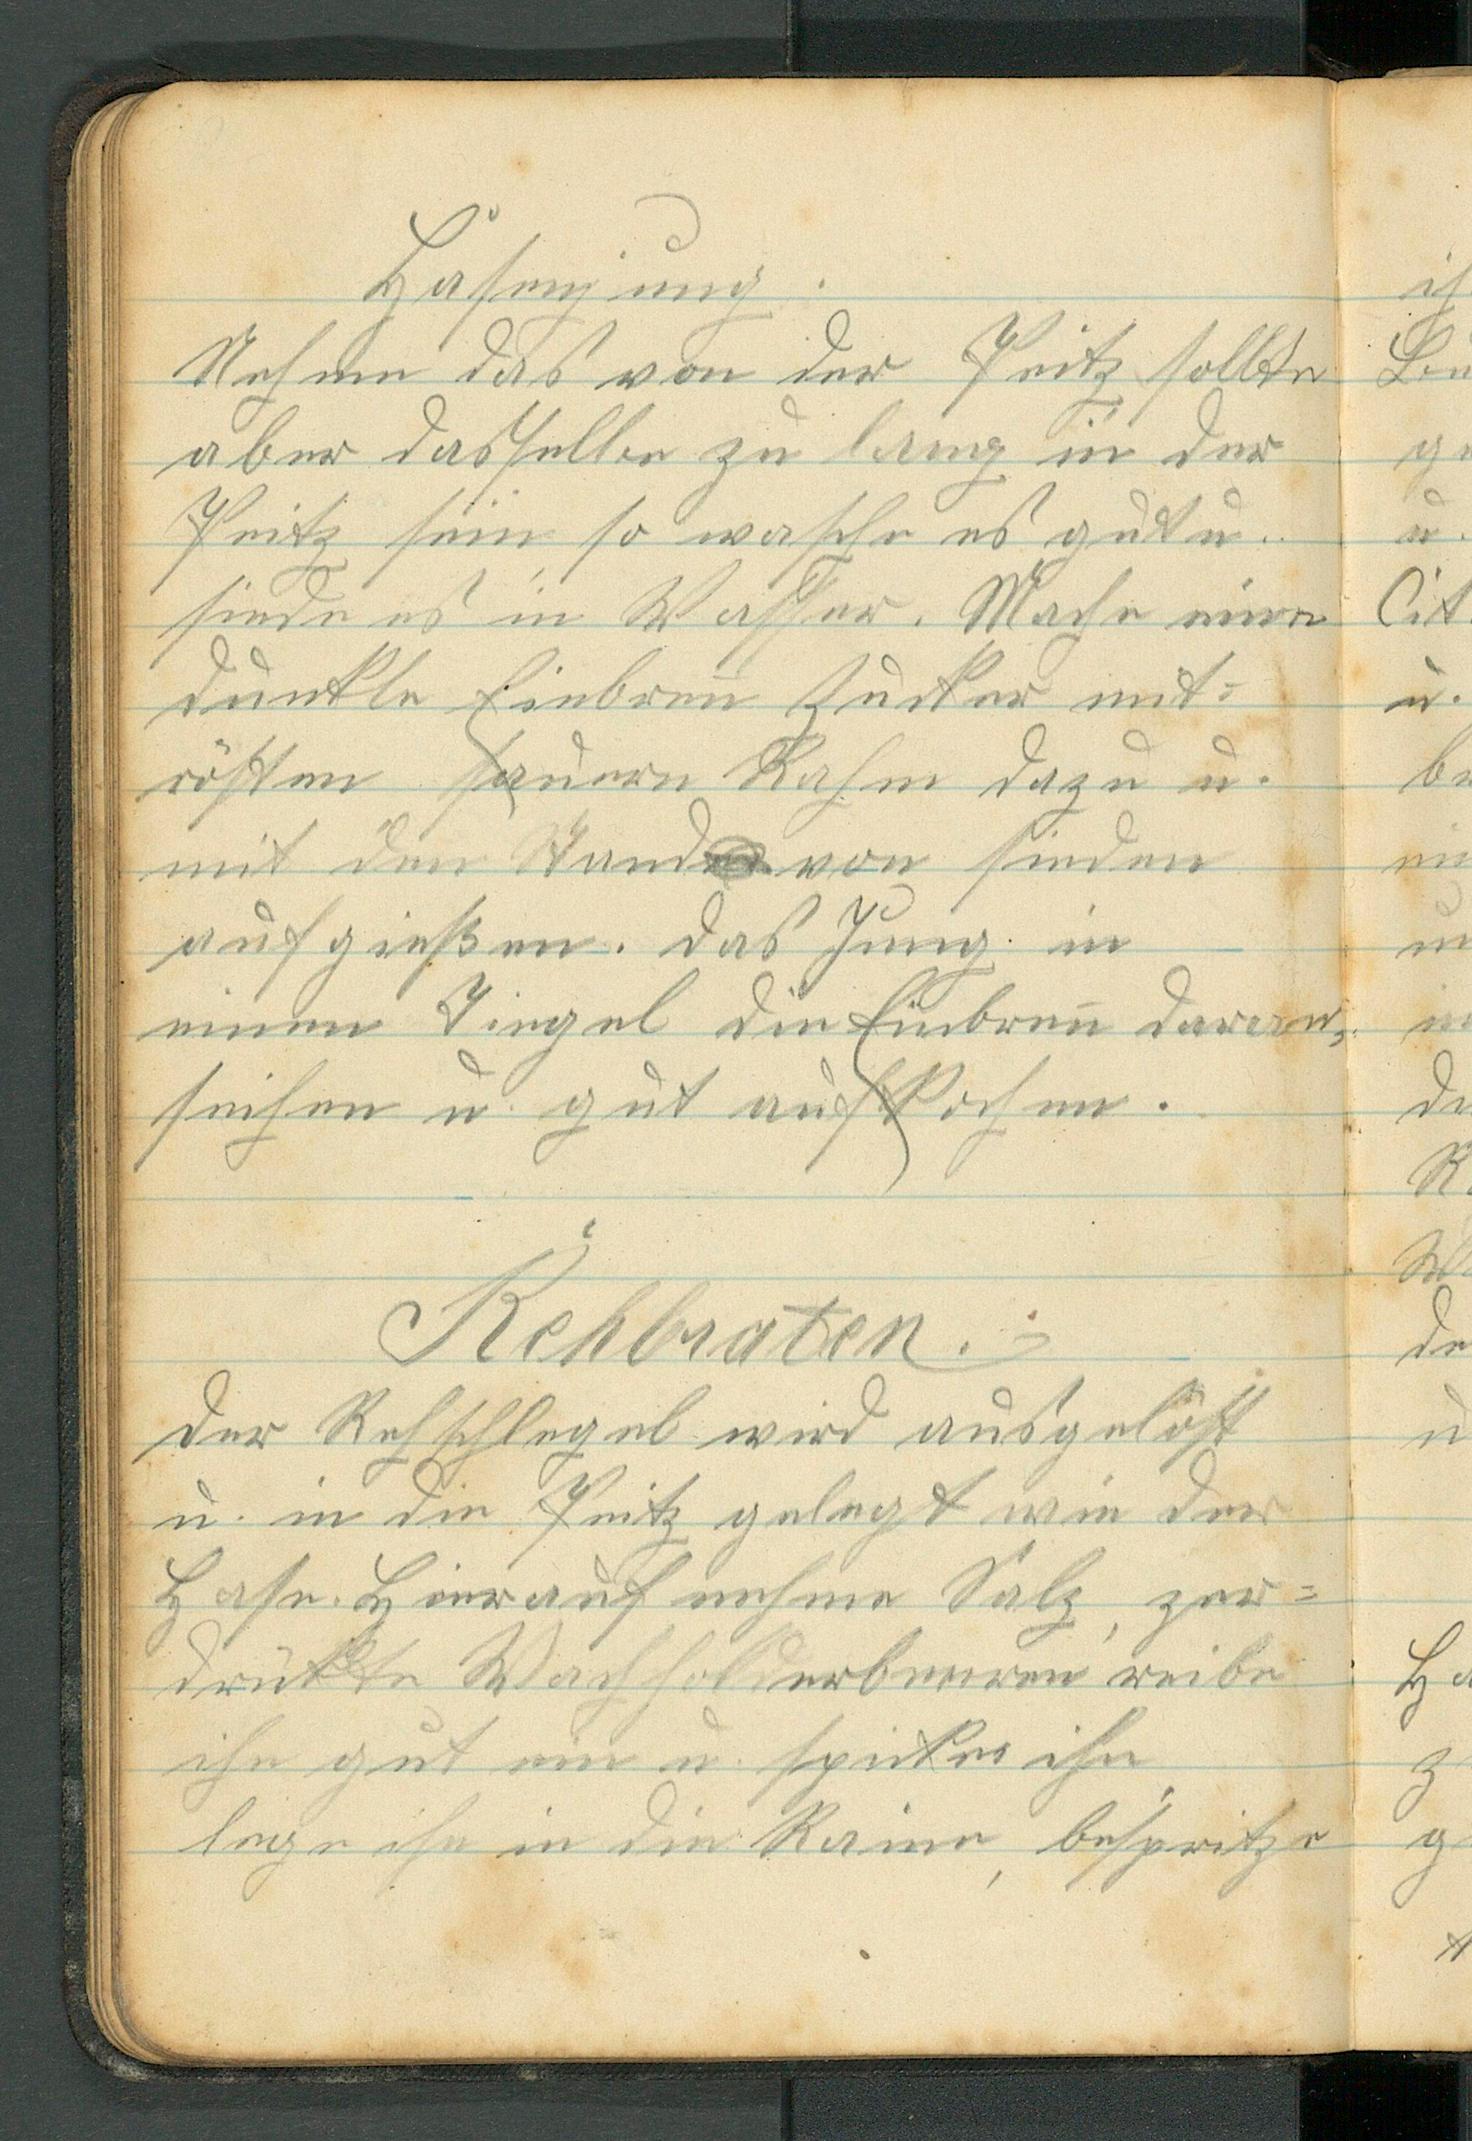 Hasenjung.
Nehme das von der Peitz sollte
aber dasselbe zu lang in der
Peitz sein, so wasche es gut u.
siede es in Wasser. Mache eine
dunkle Einbrenn Zucker mit=
rösten sauern Rahm dazu u.
mit den von sieden
aufgießen. Das Jung in
einen Tiegel die Einbrenn daran
seihen u. gut aufkochen.
Rehbraten.
Der Rehschlegel wird ausgelöst
u. in die Peitz gelegt wie der
Hase. Hierauf nehme Salz, zer=
drückte Wachholderbeeren reibe
ihn gut ein u. spicke ihn
lege ihn in die Raine, bespritze